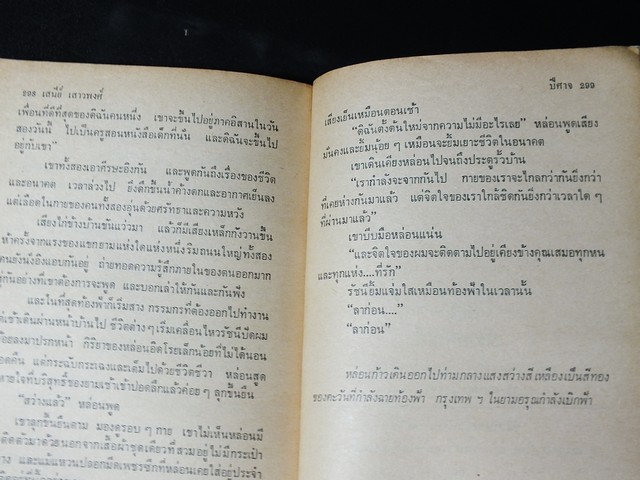 ๒๙๘ เสนีย์ เสาวพงศ์
เพื่อนที่ดีที่สุดของดิฉันคนหนึ่ง เขาจะขึ้นไปอยู่ภาคอิสานในวัน
สองวันนี้ ไปเป็นครูสอนหนังสือเด็กที่นั่น และดิฉันจะขึ้นไป
อยู่กับเขา"
เขาทั้งสองเอาศีรษะอิงกัน และพูดกันถึงเรื่องของชีวิต
และอนาคต เวลาล่วงไป ยิ่งดึกขึ้นน้ำค้างตกและอากาศเย็นลง
แต่เลือดในกายของคนทั้งสองอุ่นด้วยศรัทธาและความหวัง
เสียงไก่ข้างบ้านขันแว่วมา แล้วก็มีเสียงเหล็กกังวานขึ้น
ห้าครั้งจากแรงของแขกยามแห่งใดแห่งหนึ่งริมถนนใหญ่ ทั้งสอง
คนยังนั่งอิงแอบกันอยู่ ถ่ายทอดความรู้สึกภายในของตนออกมาก
สู่กันอย่างที่เขาต้องการจะพูด และบอกเล่าให้กันและกันฟัง
และในที่สุดท้องฟ้าก็เริ่มสาง กรรมกรที่ต้องออกไปทำงาน
แต่เช้าเดินผ่านหน้าบ้านไป ชีวิตต่างๆ เริ่มเคลื่อนไหว รัชนีปัดผม
ลงมาปรกหน้า กิริยาของหล่อนอิดโรยเล็กน้อยที่ไม่ได้นอน
ตลอดคืน แต่กระฉับกระเฉงและเต็มไปด้วยชีวิตชีวา หล่อนสูด
หายใจที่บริสุทธิ์ของยามเช้าเข้าปอดลึกแล้วค่อยๆ ลุกขึ้นยืน
"สว่างแล้ว" หล่อนพูด
เขาลุกขึ้นยืนตาม มองดรอบๆ กาย เขาไม่เห็นหล่อนมี
ติดตัวมาด้วยนอกจากเสื้อผ้าชุดเดียวที่สวมอยู่ ไม่มีกระเป๋า
และแม้แหวนปลอกมีดเพชรซีกที่หล่อนเคยใส่อยู่ประจำ
ปีศาจ ๒๙๙
เสียงเย็นเหมือนตอนเช้า
"ดิฉันตั้งต้นใหม่จากความไม่มีอะไรเลย" หล่อนพูดเสียง
มั่นคงและยิ้มน้อยๆ เหมือนจะยิ้มเยาะชีวิตในอนาคต
เขาเดินเคียงหล่อนไปจนถึงประตูรั้วบ้าน
"เรากำลังจะจากกันไป กายของเราจะไกลกว่ากันยิ่งกว่า
ที่เคยห่างกันมาแล้ว แต่จิตใจของเราใกล้ชิดกันยิ่งกว่าเวลาใดๆ
ที่ผ่านมาแล้ว"
เขาบีบมือหล่อนแน่น
"และจิตใจของผมจะติดตามไปอยู่เคียงข้างคุณเสมอทุกหน
และทุกแห่ง....ที่รัก"
รัชนียิ้มแจ่มใสเหมือนท้องฟ้าในเวลานั้น
"ลาก่อน...."
"ลาก่อน"
หล่อนก้าวเดินออกไปท่ามกลางแสงสว่างสีเหลืองเป็นสีทอง
ของตะวันที่กำลังฉายท้องฟ้า กรุงเทพ ฯ ในยามอรุณกำลังเบิกฟ้า